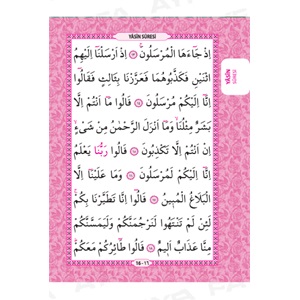 YÂSÎN SÛRESİ
YÂSÎN
SÛRESİ
اِذْ جَٓاءَهَا الْمُرْسَلُونَۚ ﴿١٣﴾ اِذْ اَرْسَلْنَٓا اِلَيْهِمُ
اثْنَيْنِ فَكَذَّبُوهُمَا فَعَزَّزْنَا بِثَالِثٍ فَقَالُٓوا
اِنَّٓا اِلَيْكُمْ مُرْسَلُونَ ﴿١٤﴾ قَالُوا مَٓا اَنْتُمْ اِلَّا
بَشَرٌ مِثْلُنَاۙ وَمَٓا اَنْزَلَ الرَّحْمٰنُ مِنْ شَيْءٍۙ
اِنْ اَنْتُمْ اِلَّا تَكْذِبُونَ ﴿١٥﴾ قَالُوا رَبُّنَا يَعْلَمُ
اِنَّٓا اِلَيْكُمْ لَمُرْسَلُونَ ﴿١٦﴾ وَمَا عَلَيْنَٓا اِلَّا
الْبَلَاغُ الْمُب۪ينُ ﴿١٧﴾ قَالُٓوا اِنَّا تَطَيَّرْنَا بِكُمْۚ
لَئِنْ لَمْ تَنْتَهُوا لَنَرْجُمَنَّكُمْ وَلَيَمَسَّنَّكُمْ
مِنَّا عَذَابٌ اَل۪يمٌ ﴿١٨﴾ قَالُوا طَٓائِرُكُمْ مَعَكُمْۜ